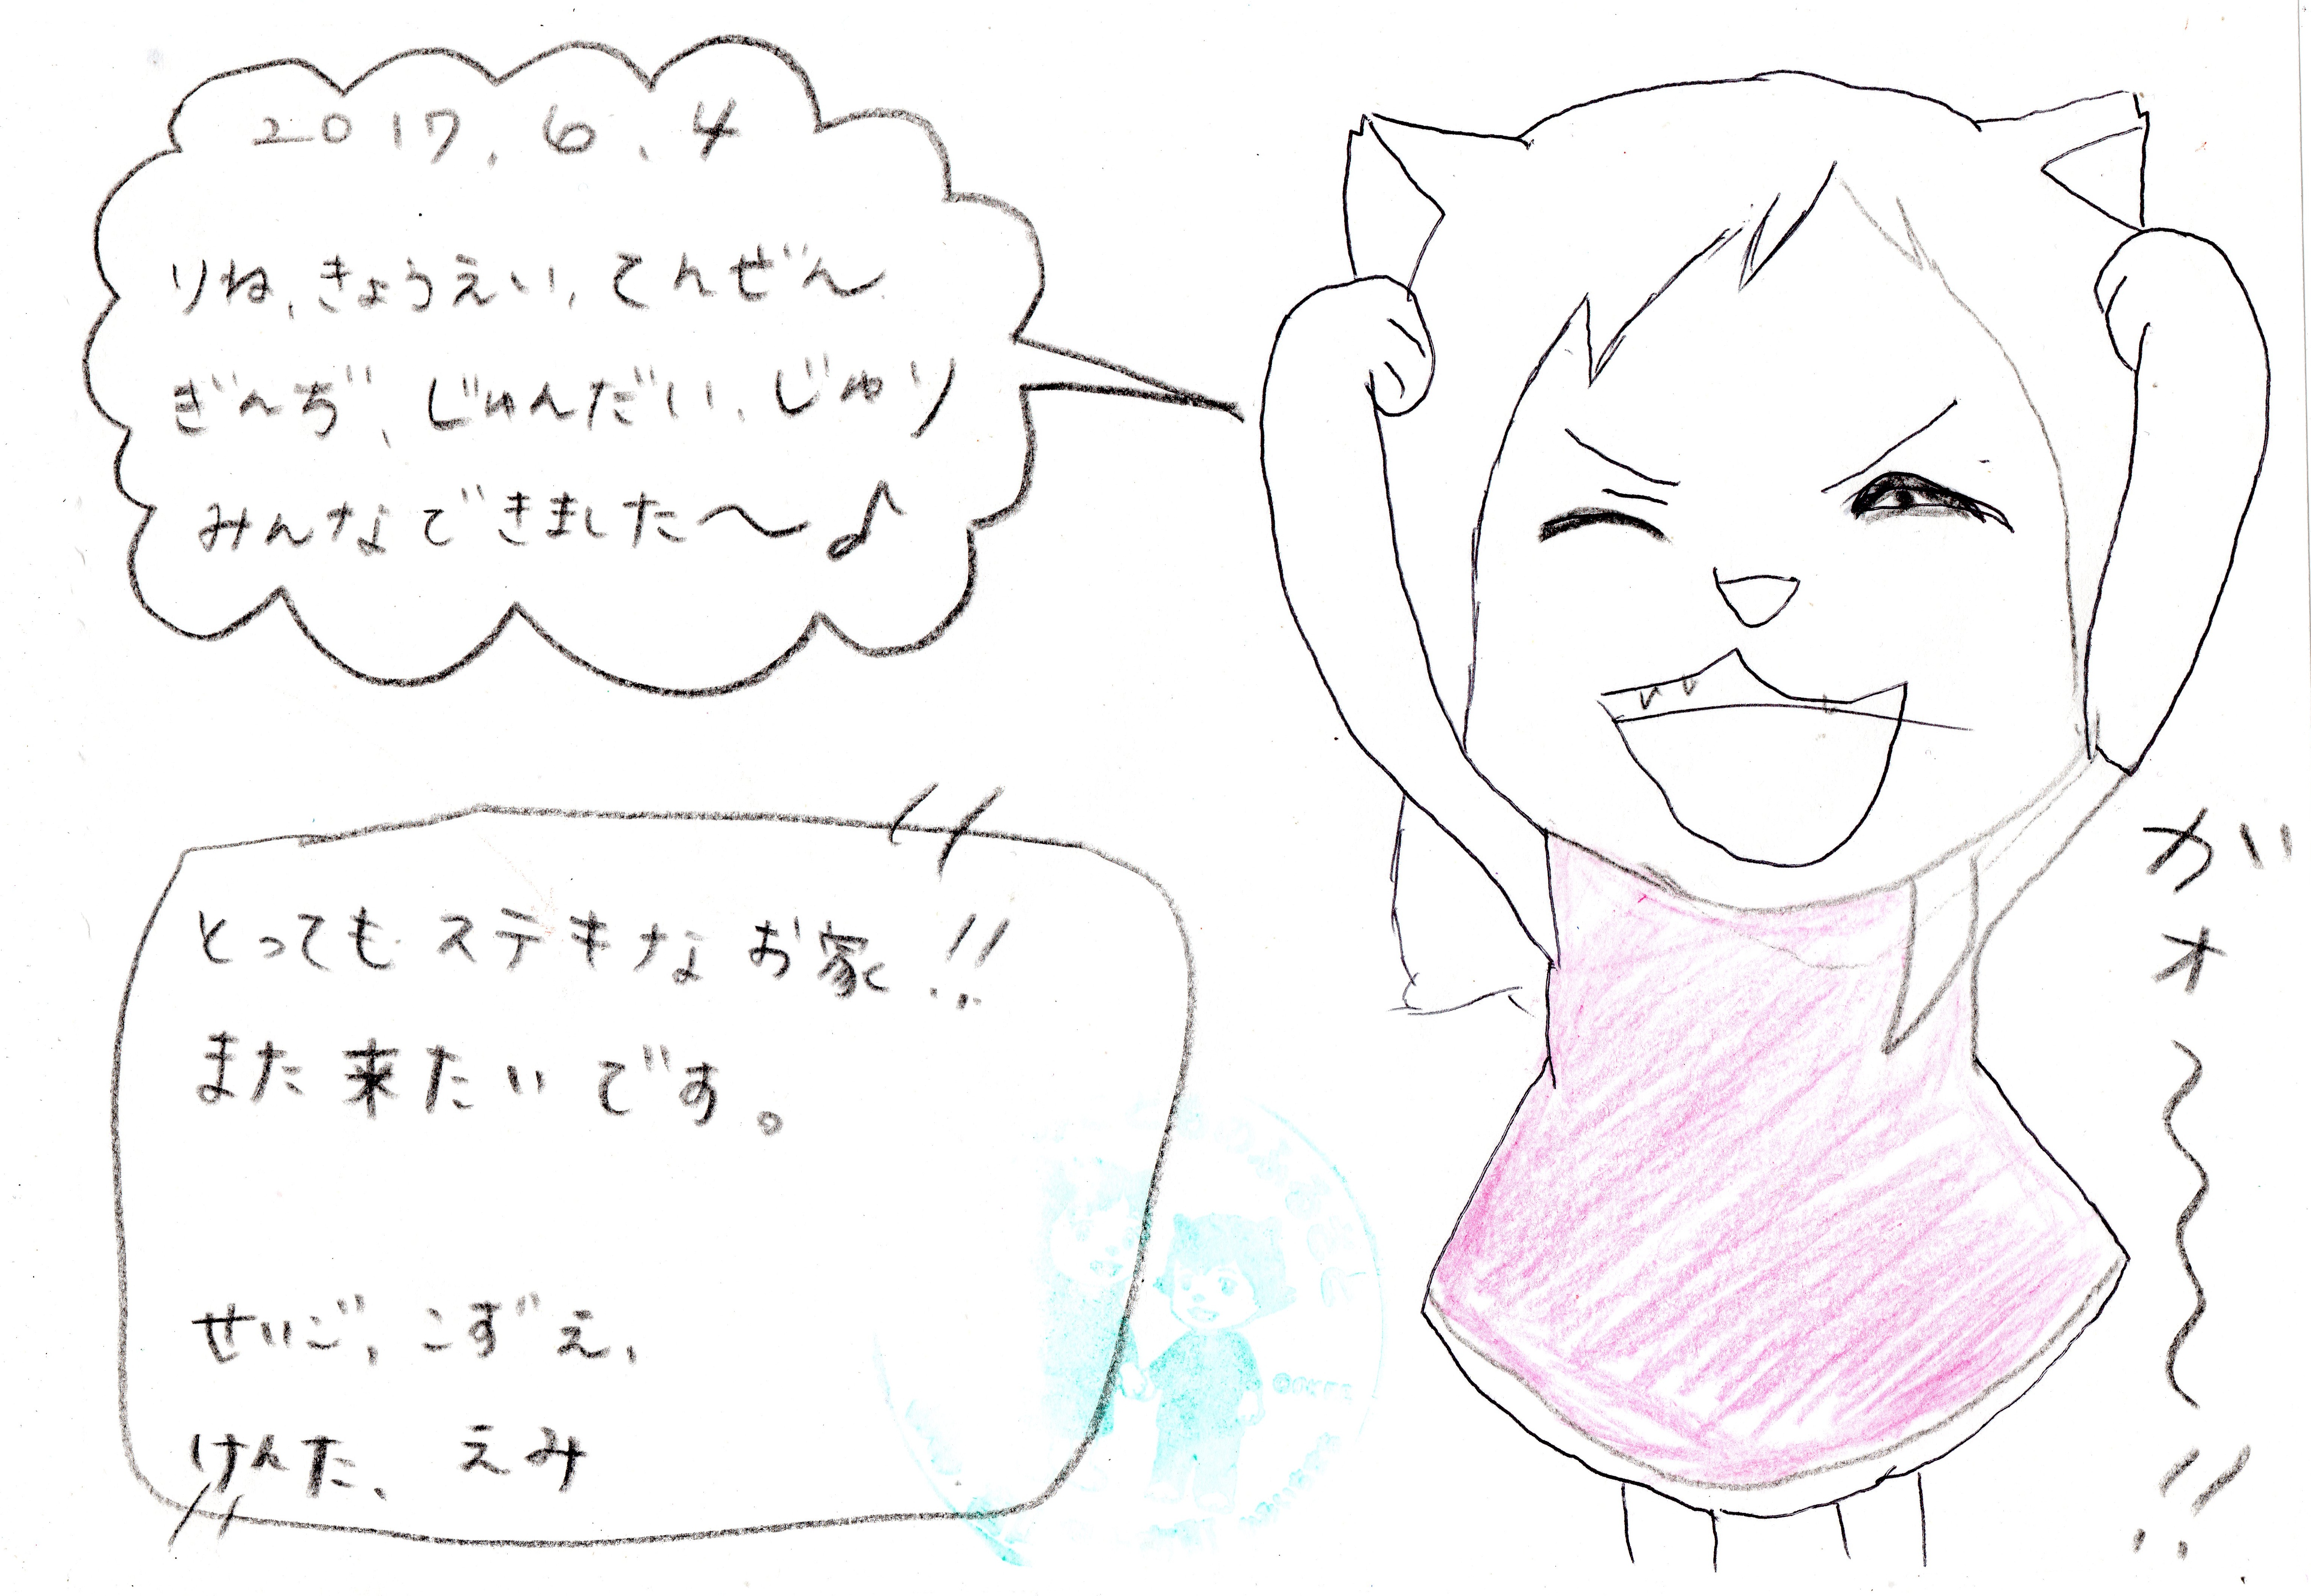 2017.6.4
りね、きょうえい、てんぜん
ぎんぢ、じゅんだい、じゅり
みんなできました〜♪
とってもステキなお家!!
また来たいです。
せいご、こずえ、
けんた、えみ
ガオ〜!!